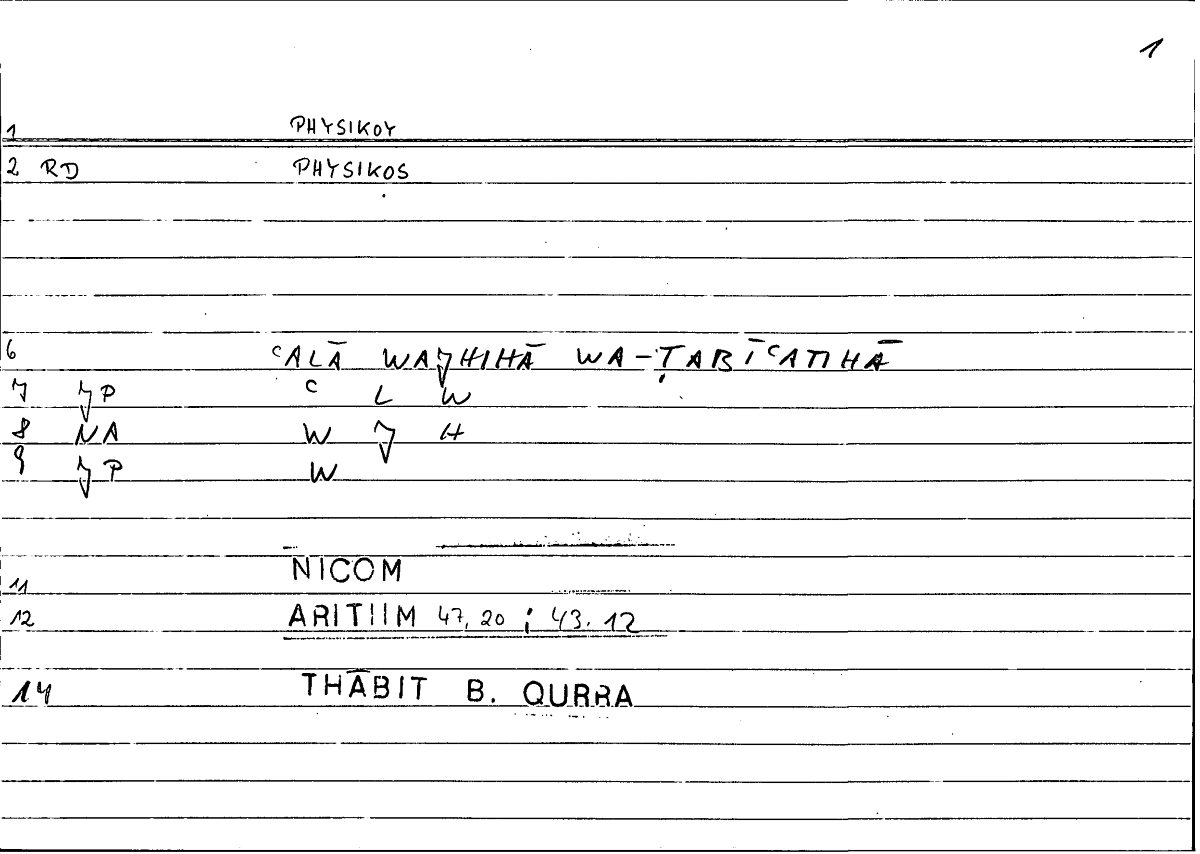 1
1 PHYSIKOY
2 RD PHYSIKOS
6 ᶜALĀ WAJHIHĀ WA-ṬABĪᶜATIHĀ
7 JP ᶜ L W
8 NA W J H
9 JP W
11 NICOM
12 ARITIIM 47, 20 ; 43. 12
14 THĀBIT B. QURRA